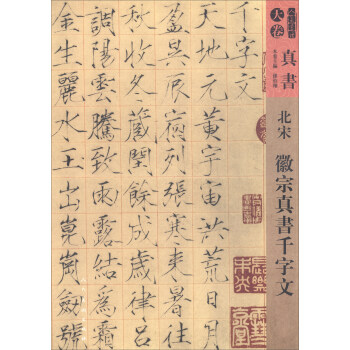 大卷
真書
北宋
徽宗真書千字文
千字文
天地元黃宇宙洪荒日月
盈昃辰宿列張寒來暑往
秋收冬藏閏餘成歲律呂
調陽雲騰致雨露結為霜
金生麗水玉出崑崗劒號